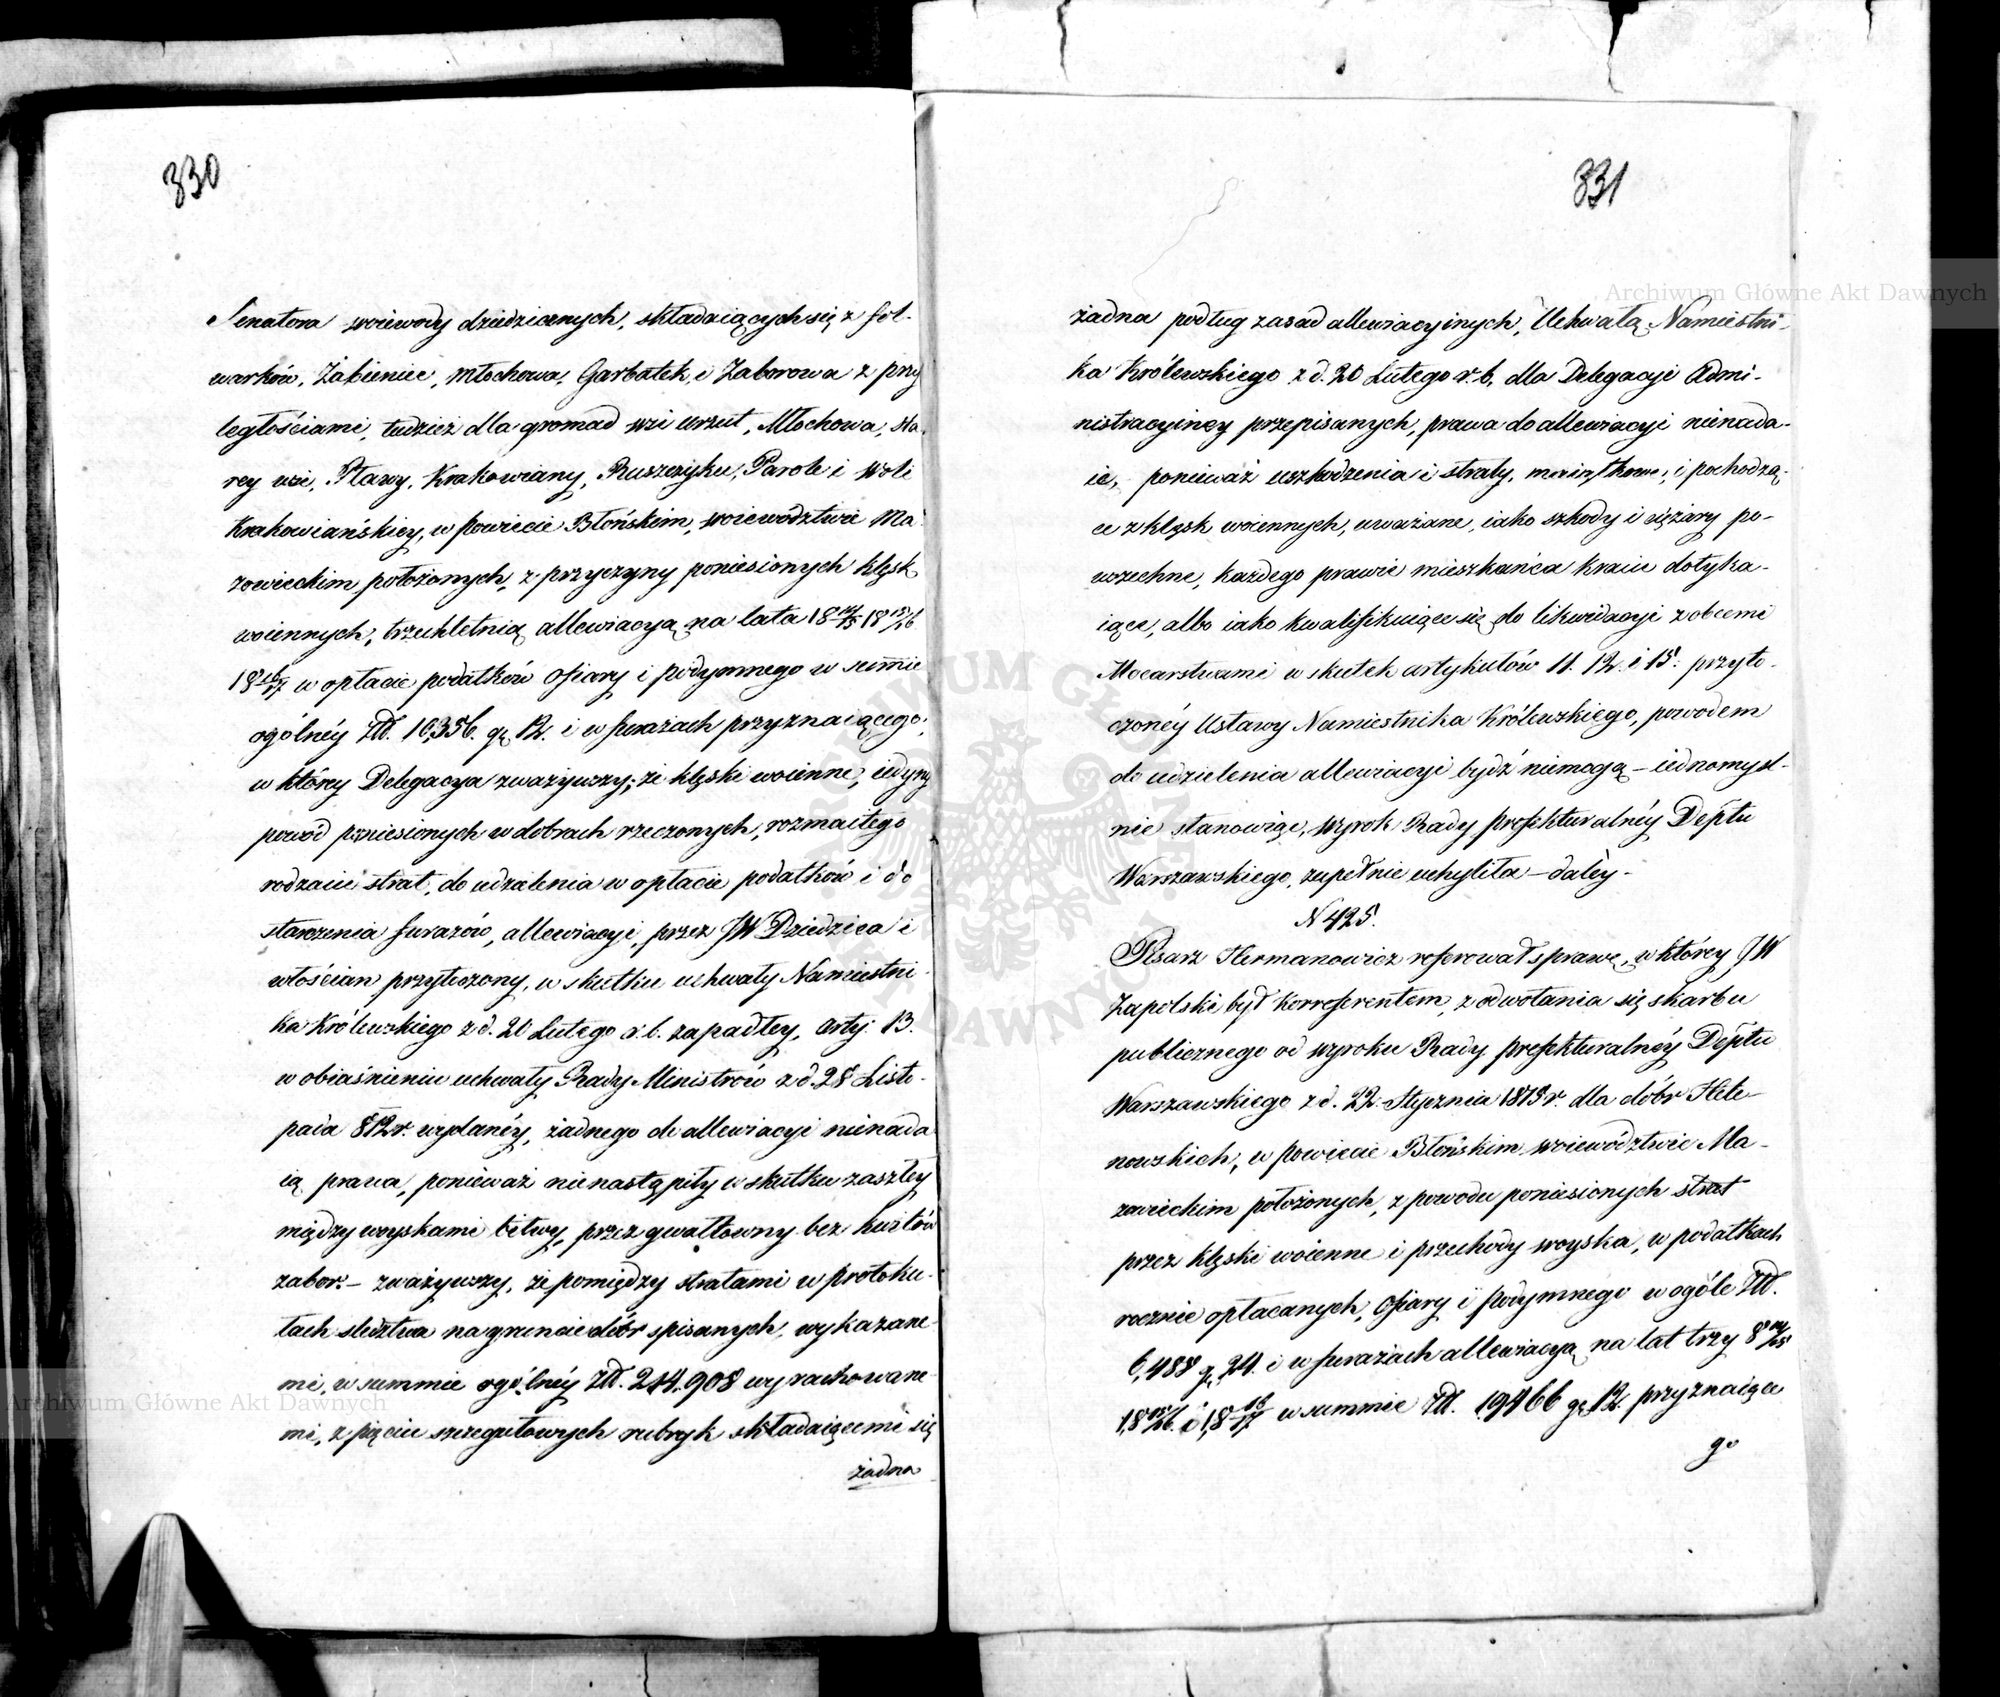 330
Senatora woiewody dziedzicznych, składaiących się z fol-
warków, Żabieniec, Młochowa, Garbatek i Zaborowa z przy
ległościami, tudzież dla gromad wsi Urzut, Młochowa, Sta
rey wsi, Pławy, Krakowiany, Ruszczyku, Parole i Woli
Krakowiańskiey, w Powiecie Błońskim, woiewództwie Ma
zowieckim położonych, z przyczyny poniesionych klęsk
woiennych, trzechletnią allewiacyą na lata 18 14/15 18 15/16
18 16/17 w opłacie podatków Ofiary i Podymnego w summie
ogólnéy Złł. 10,356. gr. 12. i w furażach przyznaiącego,
w którey Delegacya zważywszy, że klęski woienne, iedyny
powód poniesionych w dobrach rzeczonych, rozmaitego
rodzaiu strat, do udzielenia w opłacie podatków i do
starczenia furażów, allewiacyi, przez JW Dziedzica i
włościan przytoczony, w skutku uchwały Namiestni-
ka Królewskiego z d. 20 Lutego r. b. zapadłey, Arty: 13.
w obiaśnieniu uchwały Rady Ministrów z d. 28 Listo-
pada 812 r. wydanéy, żadnego do allewiacyi nienada
ią prawa, ponieważ nienastąpiły w skutku zaszłey
między woyskami bitwy, przez gwałtowny bez kwitów
zabor. – zważywszy, że pomiędzy stratami w protoku-
łach śledztwa na gruncie dóbr spisanych, wykazane-
mi, w summie ogólnéy Złł. 244.908 wyrachowane-
mi, z pięciu szczegułowych rubryk składaiącemi się
żadna
331
żadna podług zasad allewiacyinych, Uchwałą Namiestni-
ka Królewskiego z d. 20 Lutego r. b. dla Delegacyi Admi-
nistracyiney przepisanych, prawa do allewiacyi nienada-
ie, ponieważ uszkodzenia i straty, maiątkowe, i pochodzą-
ce z klęsk woiennych, uważane, iako szkody i ciężary po-
wszechne, każdego prawie mieszkańca kraiu dotyka-
iące, albo iako kwalifikuiące się do likwidacyi z obcemi
Mocarstwami w skutek artykułów 11. 12. i 15. przyto-
czonéy Ustawy Namiestnika Królewskiego, powodem
do udzielenia allewiacyi bydź niemogą – iednomyśl-
nie stanowiąc, wyrok Rady prefekturalnéy Deptu
Warszawskiego, zupełnie uchyliła – daléy –
N 425.
Pisarz Hermanowicz referował sprawę, w którey JW
Zapolski był Korreferentem, z odwołania się skarbu
publicznego od wyroku Rady prefekturalnéy Deptu
Warszawskiego z d. 22. Stycznia 1815 r. dla dóbr Hele-
nowskich, w Powiecie Błońskim woiewództwie Ma-
zowieckim położonych, z powodu poniesionych strat
przez klęski woienne i przechody woyska, w podatkach
rocznie opłacanych, Ofiary i Podymnego w ogóle Złł.
6,488 gr. 24. i w furażach allewiacyą na lat trzy 8 14/15
18 15/16. i 18 16/17 w summie Złł. 19466 gr. 12. przyznaiące
go
Archiwum Główne Akt Dawnych
Archiwum Główne Akt Dawnych
ARCHIWUM GŁÓWNE AKT DAWNYCH